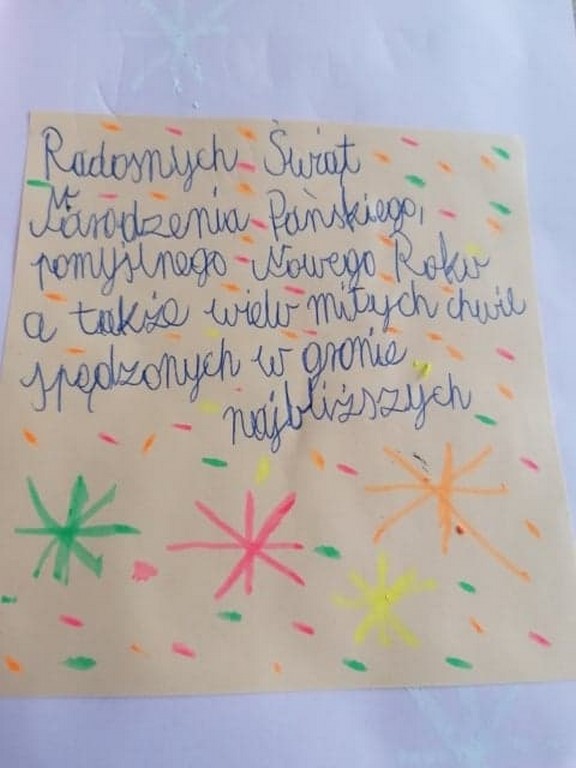 Radosnych Świąt
Narodzenia Pańskiego,
pomyślnego Nowego Roku
a także wielu miłych chwil
spędzonych w gronie
najbliższych